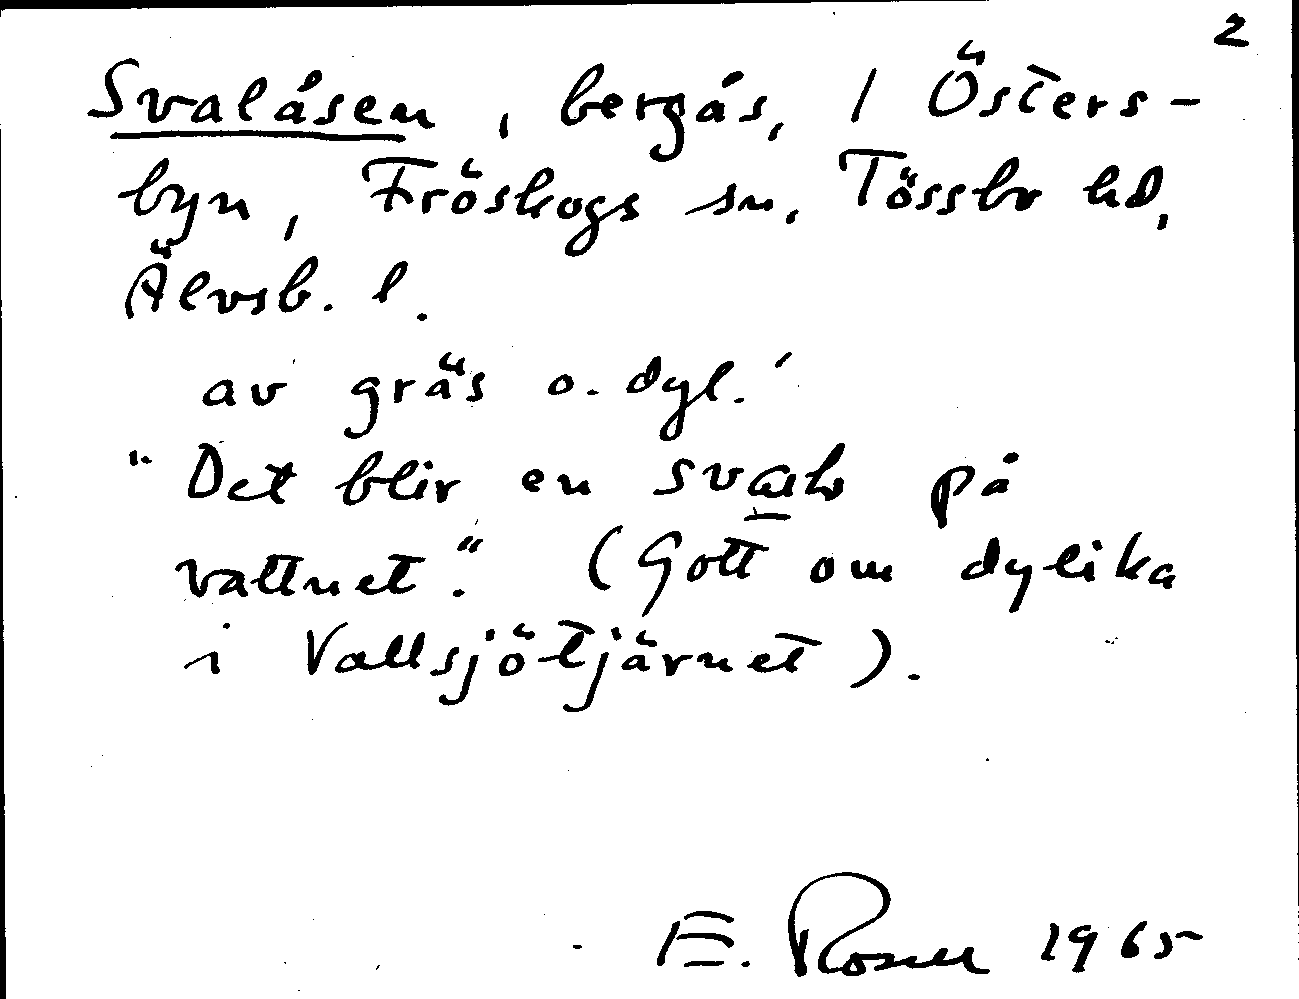 2
Svalåsen, bergås, / Östers-
byn, Fröskogs sn. Tössbo hd,
Älvsb. l.
av gräs o. dyl.'
"Det blir en svalb på
vattnet." (Gott om dylika
i Vallsjötjärnet).
E. Rosell 1965